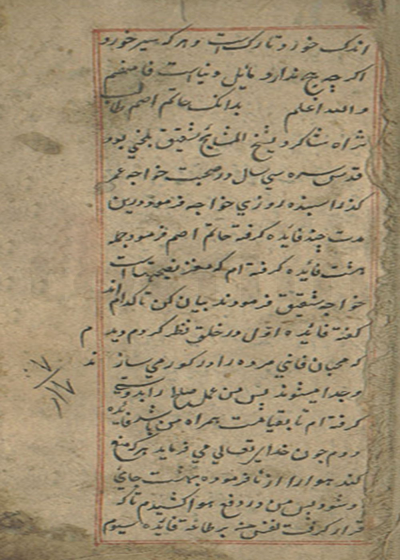 اندک خورد تارک است و هرکه سیر خورد و
اکرچه هیچ ندارد مایل دنیا است فافهم
والله اعلم بدانک حاتم اصم طاب
ثراه شاکرد شیخ المشایخ شقیق بلخی بود
قدس سره سی سال در صحبت خواجه عمر
کذرانیده روزی خواجه فرمود درین
مدت چند فائده کرفته حاتم اصم فرمود جمله
هشت فائده کرفته ام که مغز نصیحتها است
خواجه شقیق فرمودند بیان کن تا کدام اند
کفته فائده اول در خلق نظر کردم دیدم
که محبان فانی مرده را در کور می سازند
و جدا میشوند پس من عمل صالح را بدوستی
کرفته ام تا بقیامت همراه من باشد فائده
دوم چون خدای تعالی می فرماید هرکه منع
کند هوا را از نافرموده بهشت جای
او شود پس من در دفع هوا کوشیدم تا که
قرار کرفت نفس من بر طاعة فائده سیوم